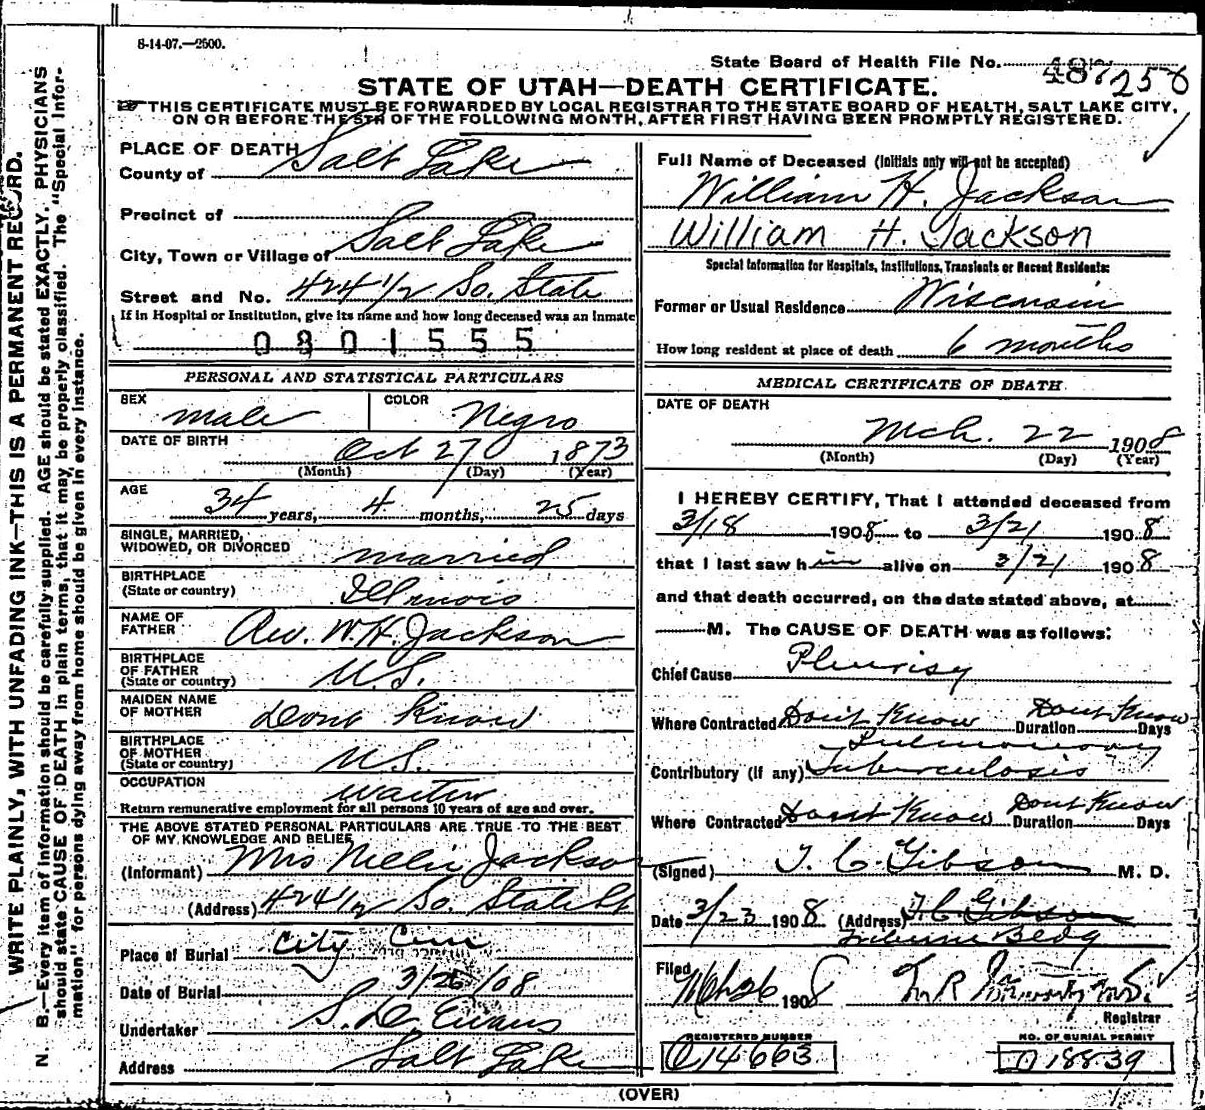 8-14-07.—2500.
State Board of Health File No. 487 256
STATE OF UTAH—DEATH CERTIFICATE.
THIS CERTIFICATE MUST BE FORWARDED BY LOCAL REGISTRAR TO THE STATE BOARD OF HEALTH, SALT LAKE CITY,
ON OR BEFORE THE 5TH OF THE FOLLOWING MONTH, AFTER FIRST HAVING BEEN PROMPTLY REGISTERED.
WRITE PLAINLY, WITH UNFADING INK—THIS IS A PERMANENT RECORD.
N. B.—Every item of information should be carefully supplied. AGE should be stated EXACTLY. PHYSICIANS
should state CAUSE OF DEATH in plain terms, that it may be properly classified. The "Special Infor-
mation" for persons dying away from home should be given in every instance.
PLACE OF DEATH
County of Salt Lake
Precinct of
City, Town or Village of Salt Lake
Street and No. 424 1/2 So. State
If in Hospital or Institution, give its name and how long deceased was an inmate
0801555
PERSONAL AND STATISTICAL PARTICULARS
SEX male COLOR Negro
DATE OF BIRTH Oct 27 1873
(Month) (Day) (Year)
AGE 34 years, 4 months, 25 days
SINGLE, MARRIED,
WIDOWED, OR DIVORCED married
BIRTHPLACE
(State or country) Illinois
NAME OF
FATHER Rev. W. H. Jackson
BIRTHPLACE
OF FATHER
(State or country) U.S.
MAIDEN NAME
OF MOTHER dont know
BIRTHPLACE
OF MOTHER
(State or country) U.S.
OCCUPATION waiter
Return remunerative employment for all persons 10 years of age and over.
THE ABOVE STATED PERSONAL PARTICULARS ARE TRUE TO THE BEST
OF MY KNOWLEDGE AND BELIEF
(Informant) Mrs Nellie Jackson
(Address) 424 1/2 So. State St
Place of Burial City Cem
Date of Burial 3/26/08
Undertaker S. D. Evans
Address Salt Lake
Full Name of Deceased (Initials only will not be accepted)
William H. Jackson
William H. Jackson
Special Information for Hospitals, Institutions, Transients or Recent Residents:
Former or Usual Residence Wisconsin
How long resident at place of death 6 months
MEDICAL CERTIFICATE OF DEATH
DATE OF DEATH
Mch. 22 1908
(Month) (Day) (Year)
I HEREBY CERTIFY, That I attended deceased from
3/18 1908 to 3/21 1908
that I last saw him alive on 3/21 1908
and that death occurred, on the date stated above, at
M. The CAUSE OF DEATH was as follows:
Chief Cause Pleurisy
Where Contracted Don't Know Duration Dont Know Days
Pulmonary
Contributory (if any) Tuberculosis
Where Contracted Dont Know Duration Dont Know Days
(Signed) T. C. Gibson M. D.
Date 3/23 1908 (Address) T. C. Gibson
Tribune Bldg
Filed Mch 26 1908
Registrar
REGISTERED NUMBER
014663
NO. OF BURIAL PERMIT
018839
(OVER)